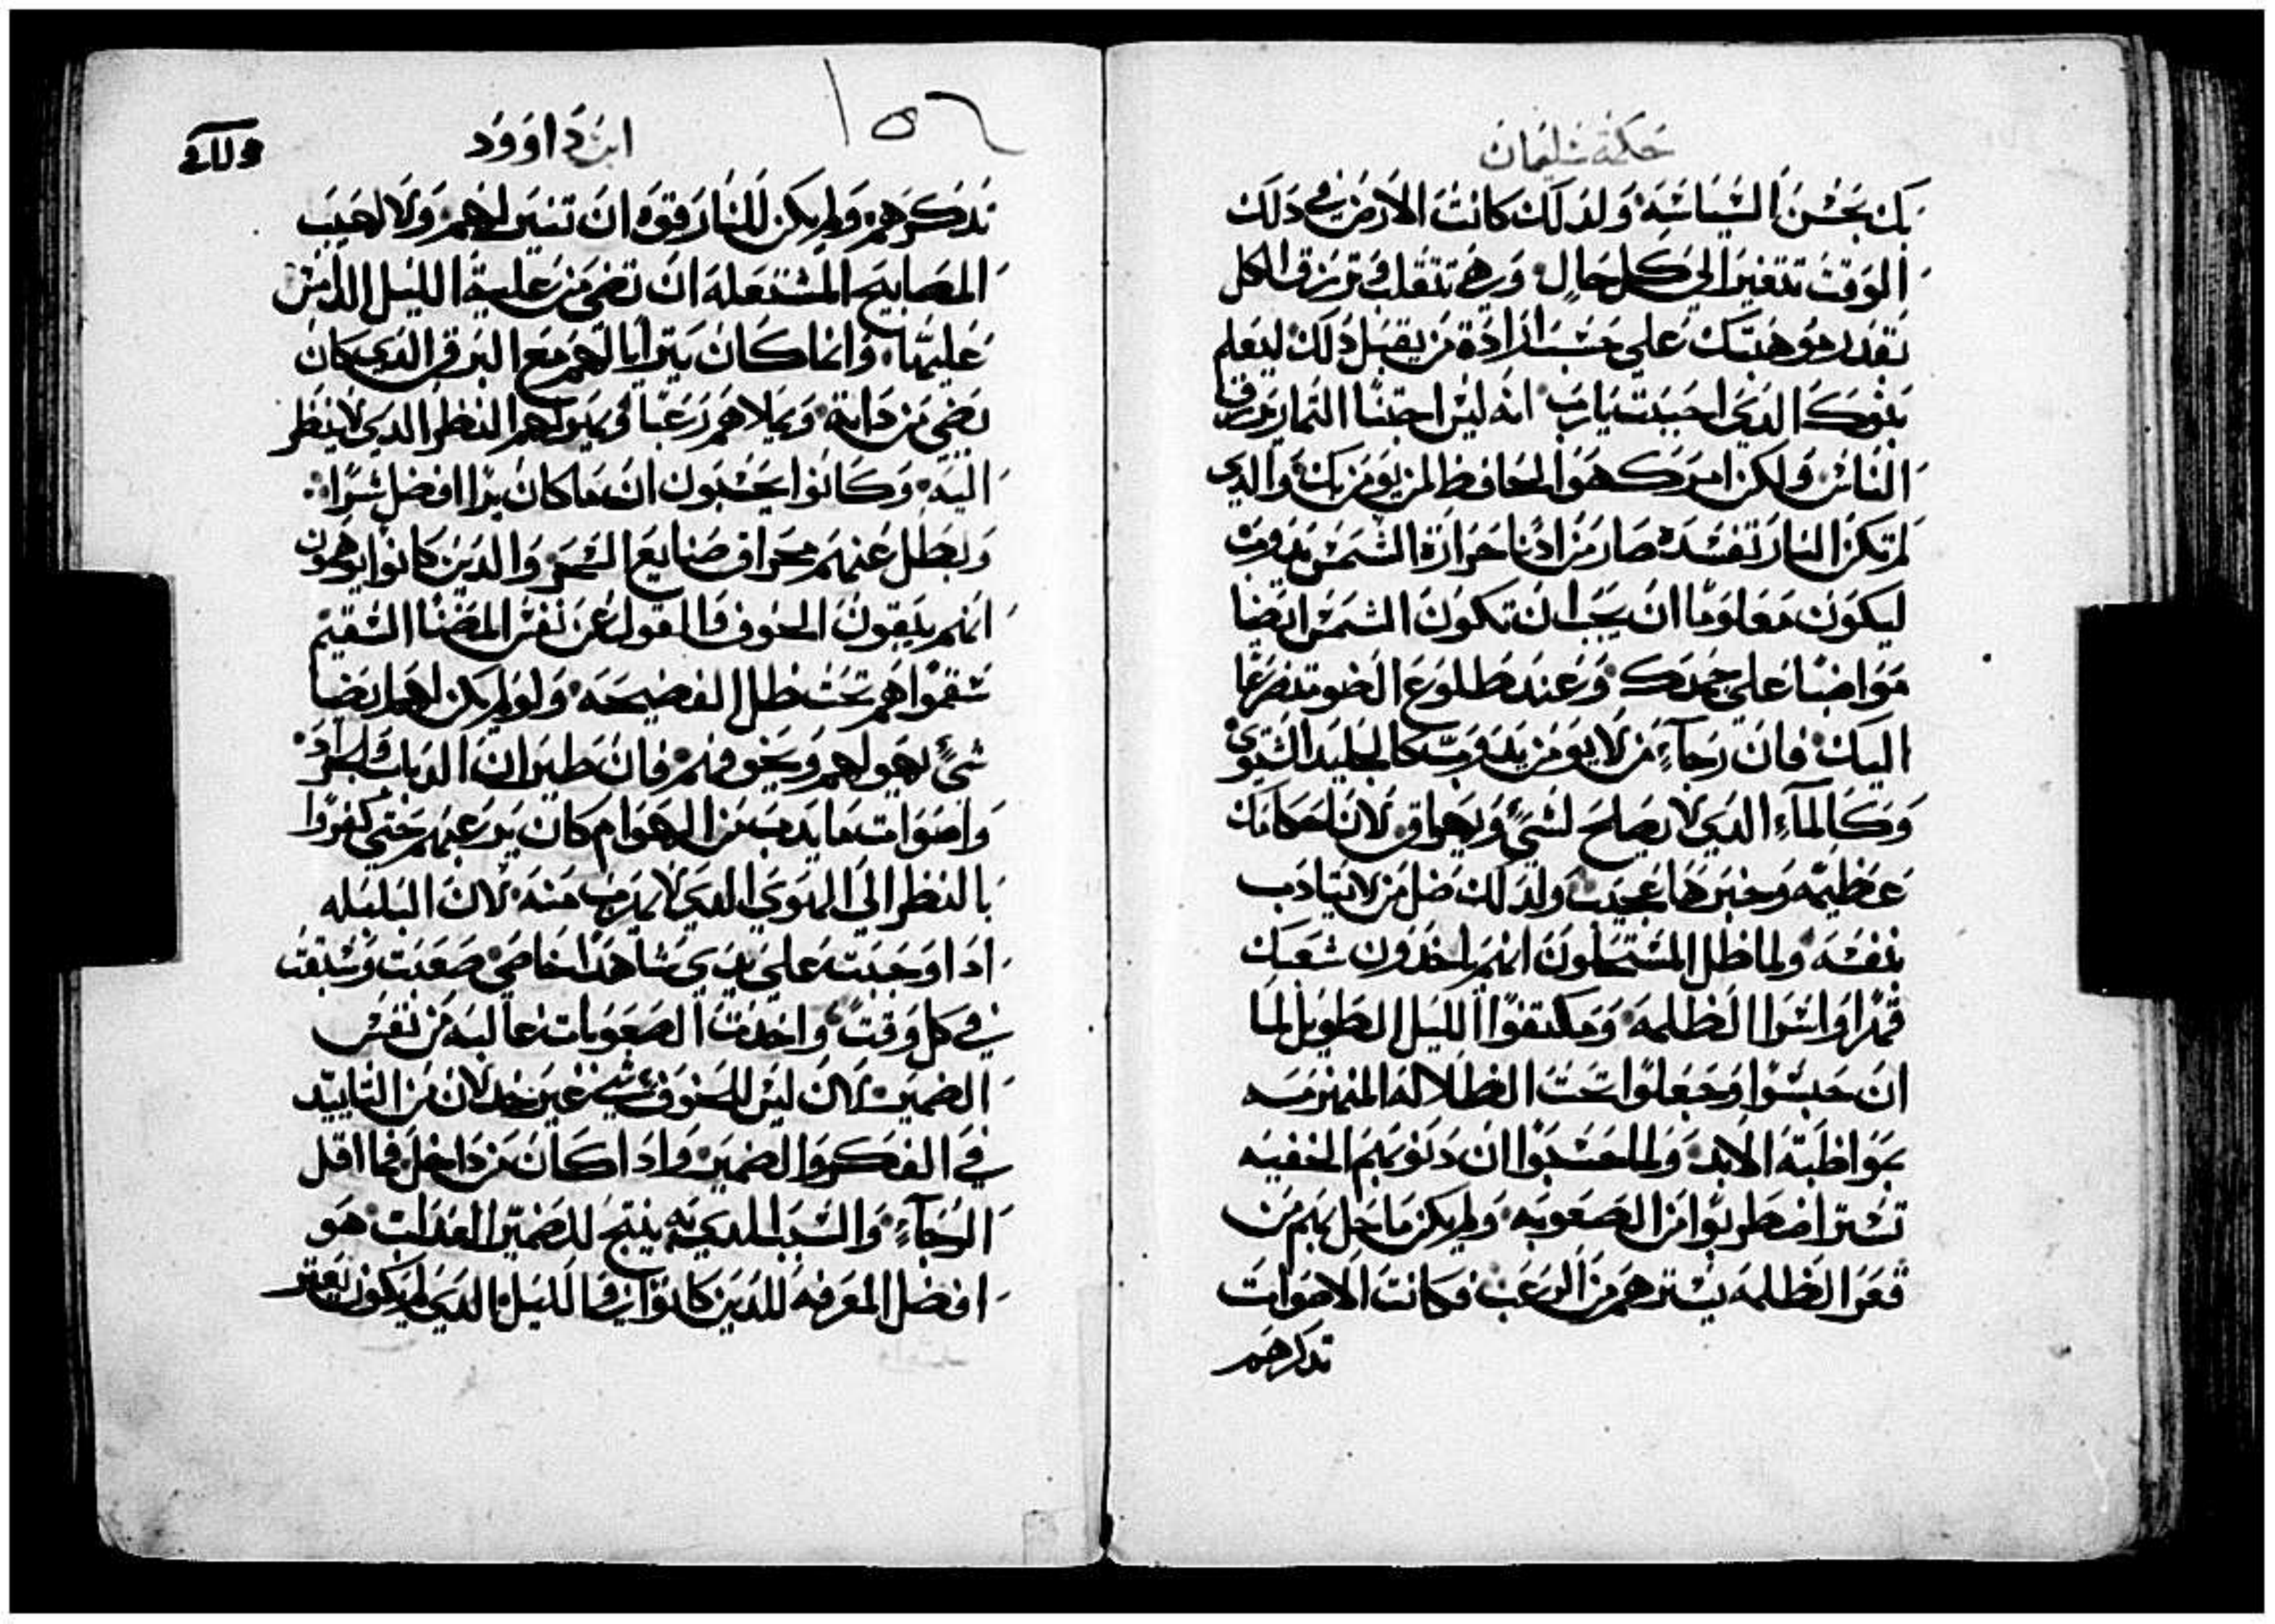 حكمة سليمان
بك بحسن السياسة ولذلك كانت الارض في ذلك
الوقت تتغير الي كل حال وهي تتقلب وترزق الكل
بقدر موهبتك علي حسب ارادة من يقبل ذلك ليعلم
بنوك الذي احببت يارب انه ليس اجتنا الثمار يرزق
الناس ولكن امرك هو الحافظ لمن يومن بك والذي
لم تكن النار تفسده صار من ادنا حرارة الشمس يدوب
ليكون معلوما ان يجب ان تكون الشمس ايضا
مواضبا علي حمدك وعند طلوع الضو متضرعا
اليك فان رجآء من لا يومن يدوب كالجليد الشتوي
وكالمآء الذي لا يصلح لشيً ويهراق لان احكامك
عظيمه وخبرها عجيب ولذلك ضل من لا يتادب
بنفسه ولما ظل المستحلون انهم ياخذون شعبك
قهرا واسرا الظلمه ومكتفوا الليل الطويل لما
ان حبسوا وجعلوا تحت الظلاله المنهزمه
بمواظبة الابد ولما حسبوا ان دنوبهم الخفيه
تستر اضطربوا من الصعوبه ولم يكن ما حل بهم من
قعر الظلمه يسترهم من الرعب فكانت الاصوات
تدكرهم
١٥٦
ابن داوود
تدكرهم ولم يكن للنار قوه ان تنير لهم ولا لهيب
المصابيح المشتعله ان تضي من علية الليل الدامس
عليها وانما كان يترايا لهم مع البرق الذي كان
يضي من داته ويملاهم رعبا ويهولهم النظر الدي لا ينظر
اليه وكانوا يحسبون ان ما كان يرا افضل شرا
وبطل عنهم محراق صنايع السحر والدين كانوا يوهمون
انهم يتقون الخوف والهول عن نفس المضنا السقيم
سقموا هم تحت ظل الفضيحه ولو لم يكن لهم ايضا
شيً يهولهم ويخوفهم فان طيران الدباب والجراد
واصوات ما يدب من الهوام كان يرعبهم حتي كفروا
بالنظر الي الهوي الدي لا يهرب منه لان البلبله
ادا وجبت علي يدي شاهد خاص صعبت وسبقت
في كل وقت واخدت الصعوبات غالبه من نفس
الضمير لان ليس للخوف شي غير خدلان من التاييد
في الفكر والضمير وادا كان من داخل فما اقل
الرجآء والسبب الدي به ينتج للضمير العداب هو
افضل المعرفه للدين كانوا في الليل الدي لم يكون يعبر